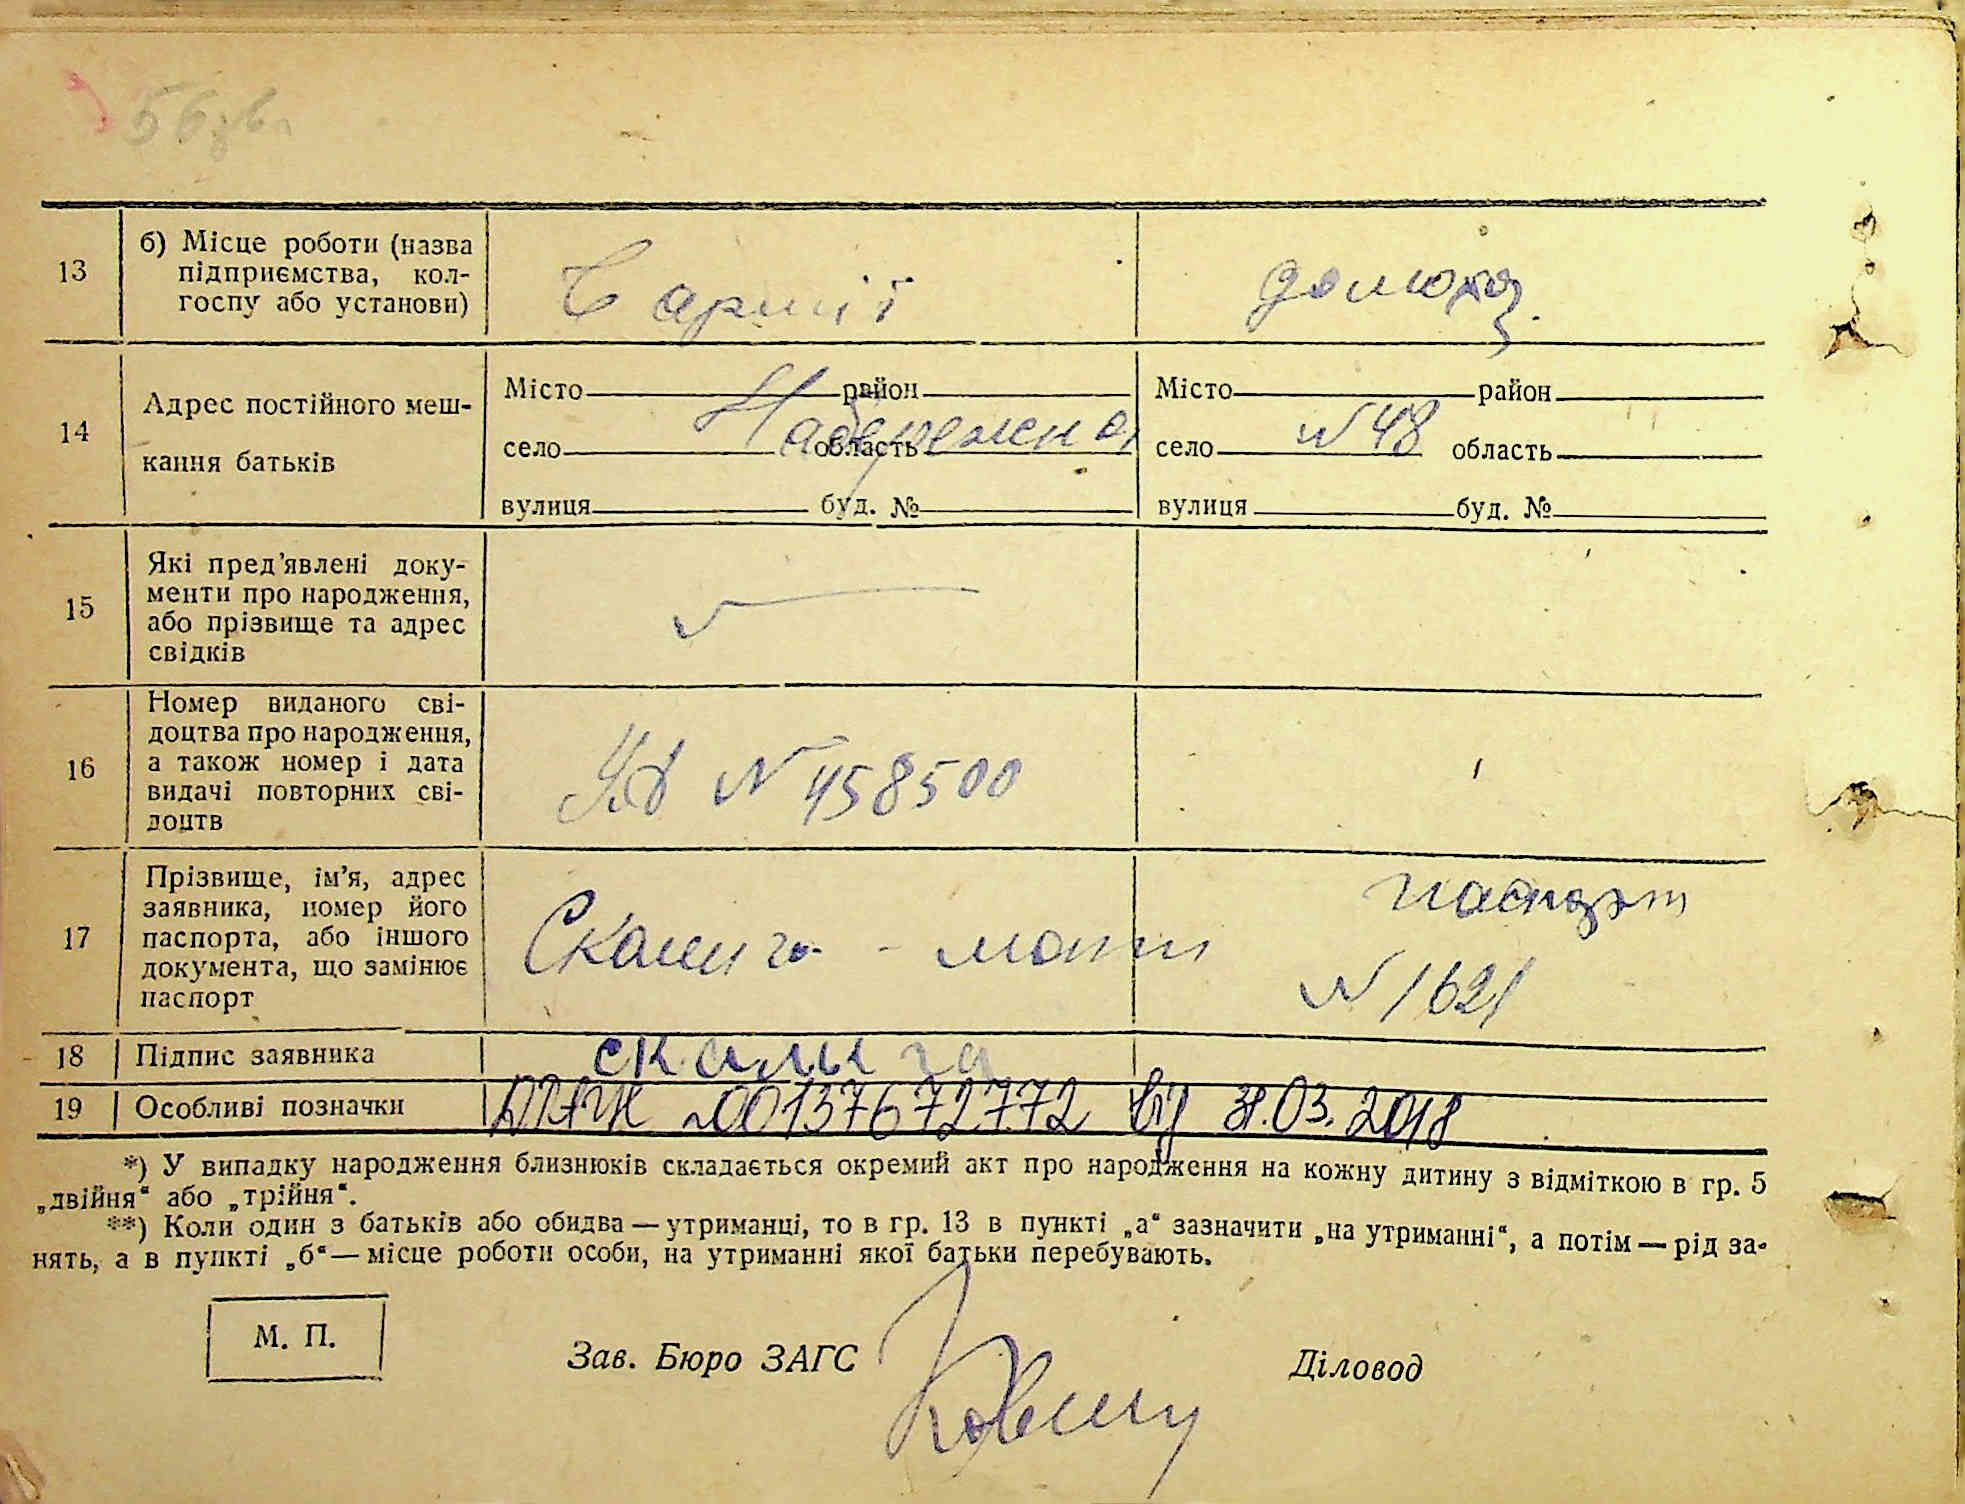 56 зв.
13
б) Місце роботи (назва
підприємства, кол-
госпу або установи)
В армії
домогоз.
14
Адрес постійного меш-
кання батьків
Місто район
село область
вулиця буд. №
Набережна
Місто район
село область
вулиця буд. №
N 48
15
Які пред'явлені доку-
менти про народження,
або прізвище та адрес
свідків
16
Номер виданого сві-
доцтва про народження,
а також номер і дата
видачі повторних сві-
доцтв
N 458500
17
Прізвище, ім'я, адрес
заявника, номер його
паспорта, або іншого
документа, що замінює
паспорт
Скалига - мати
паспорт
N 1621
18
Підпис заявника
скалыга
19
Особливі позначки
00137672772 від 31.03.2018
*) У випадку народження близнюків складається окремий акт про народження на кожну дитину з відміткою в гр. 5
„двійня“ або „трійня“.
**) Коли один з батьків або обидва — утриманці, то в гр. 13 в пункті „а“ зазначити „на утриманні“, а потім — рід за-
нять, а в пункті „б“ — місце роботи особи, на утриманні якої батьки перебувають.
М. П.
Зав. Бюро ЗАГС
Діловод